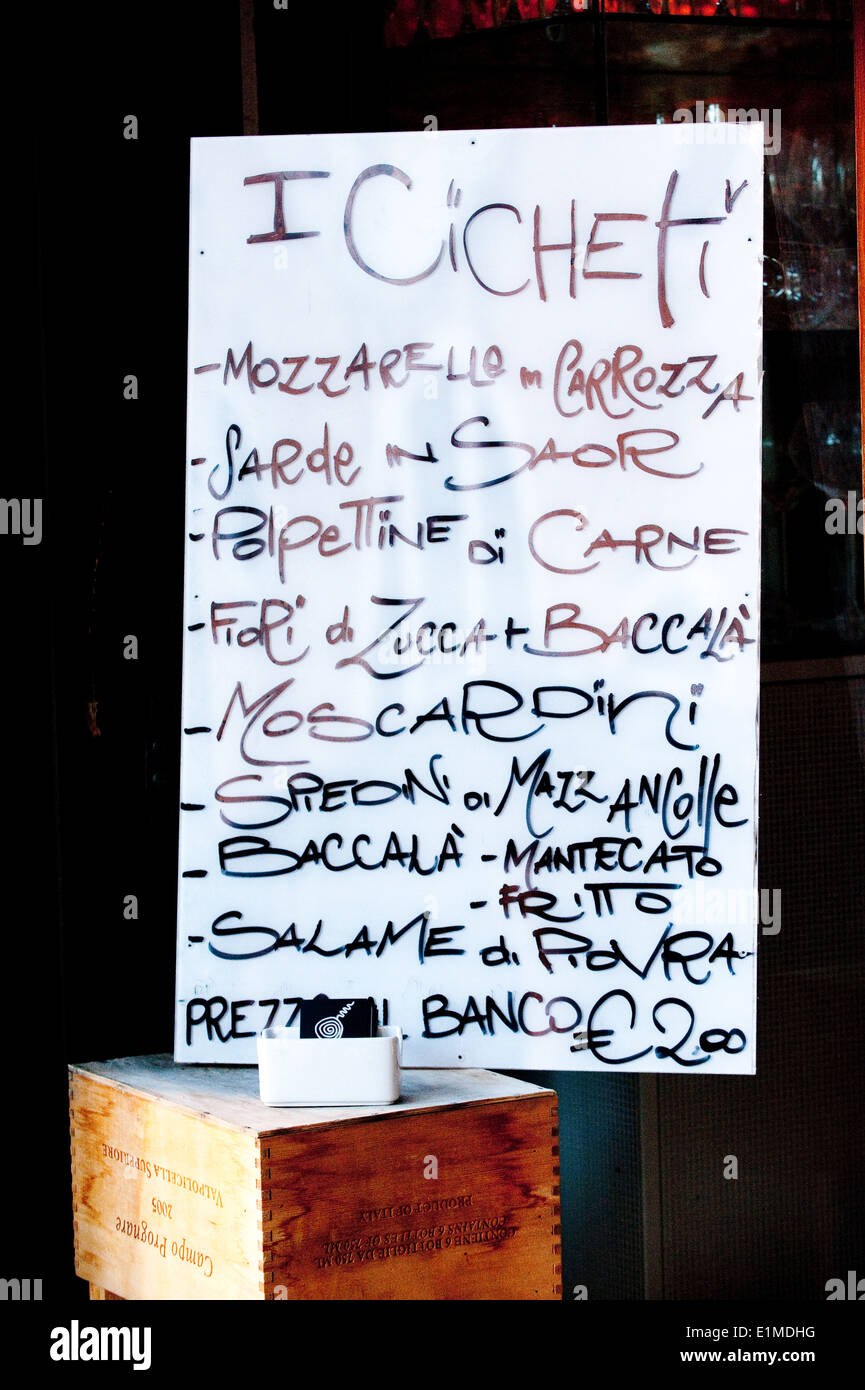 I CiCHETi
- MOZZARELLe in CARROZZA
- SARde in SAOR
- Polpettine di CARNE
- FIORI di ZUCCA + BACCALÀ
- MOSCARDini
- SPIEDINi Di MAZZANColle
- BACCALÀ - MANTECATO
- FRITTO
- SALAME di PIOVRA
PREZZO AL BANCO € 2,00
Campo Prognare
2005
VALPOLICELLA SUPERIORE
CONTIENE 6 BOTTIGLIE DA 750 ML
CONTAINS 6 BOTTLES OF 750 ML
PRODUCT OF ITALY
a
alamy
alamy
Image ID: E1MDHG
www.alamy.com